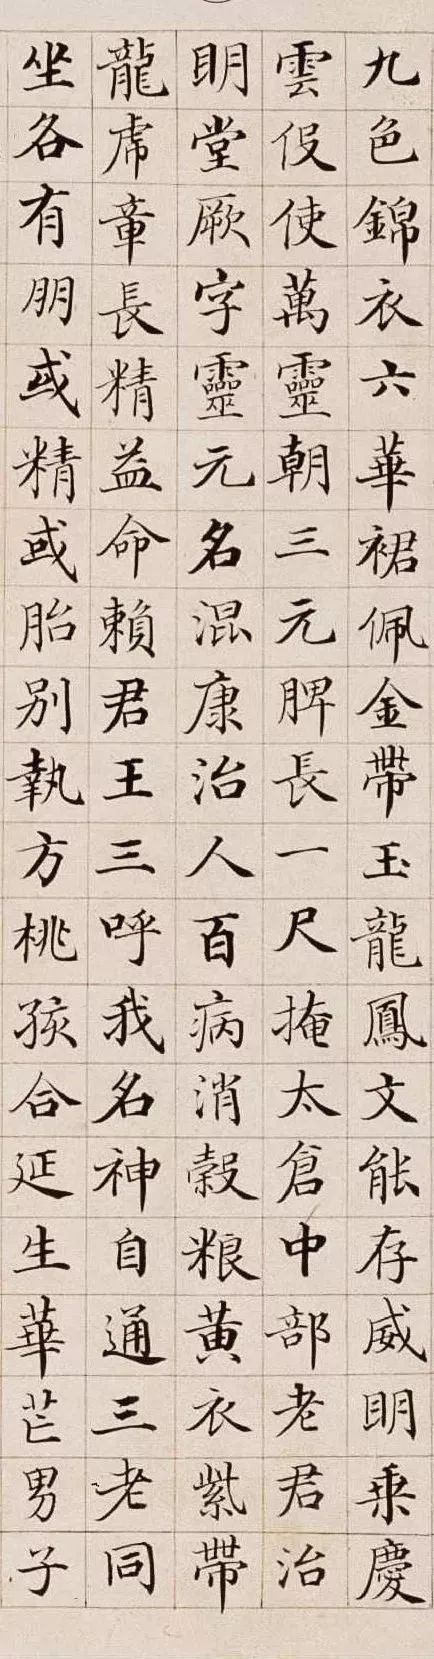 九色錦衣六華裙佩金帶玉龍鳳文能存威明乘慶
雲伇使萬靈朝三元脾長一尺掩太倉中部老君治
明堂厥字靈元名混康治人百病消穀粮黃衣紫帶
龍虎章長精益命賴君王三呼我名神自通三老同
坐各有朋或精或胎別執方桃孩合延生華芒男子